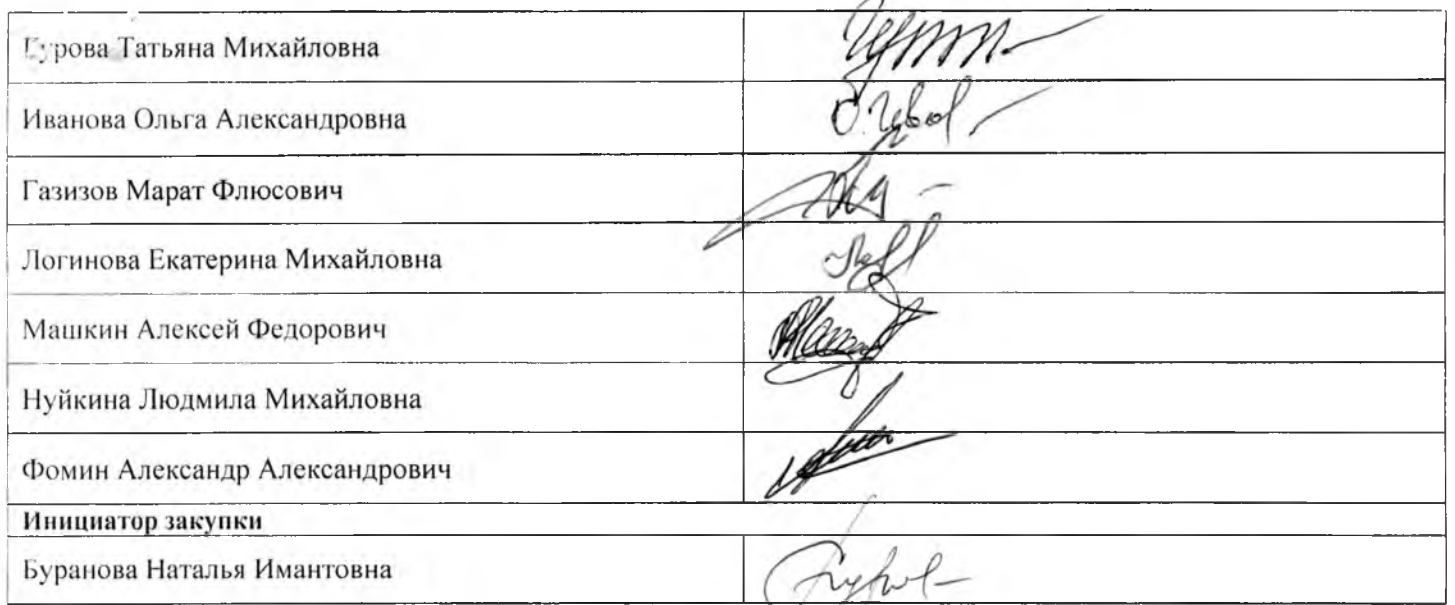 Гурова Татьяна Михайловна
Иванова Ольга Александровна
Газизов Марат Флюсович
Логинова Екатерина Михайловна
Машкин Алексей Федорович
Нуйкина Людмила Михайловна
Фомин Александр Александрович
Инициатор закупки
Буранова Наталья Имантовна